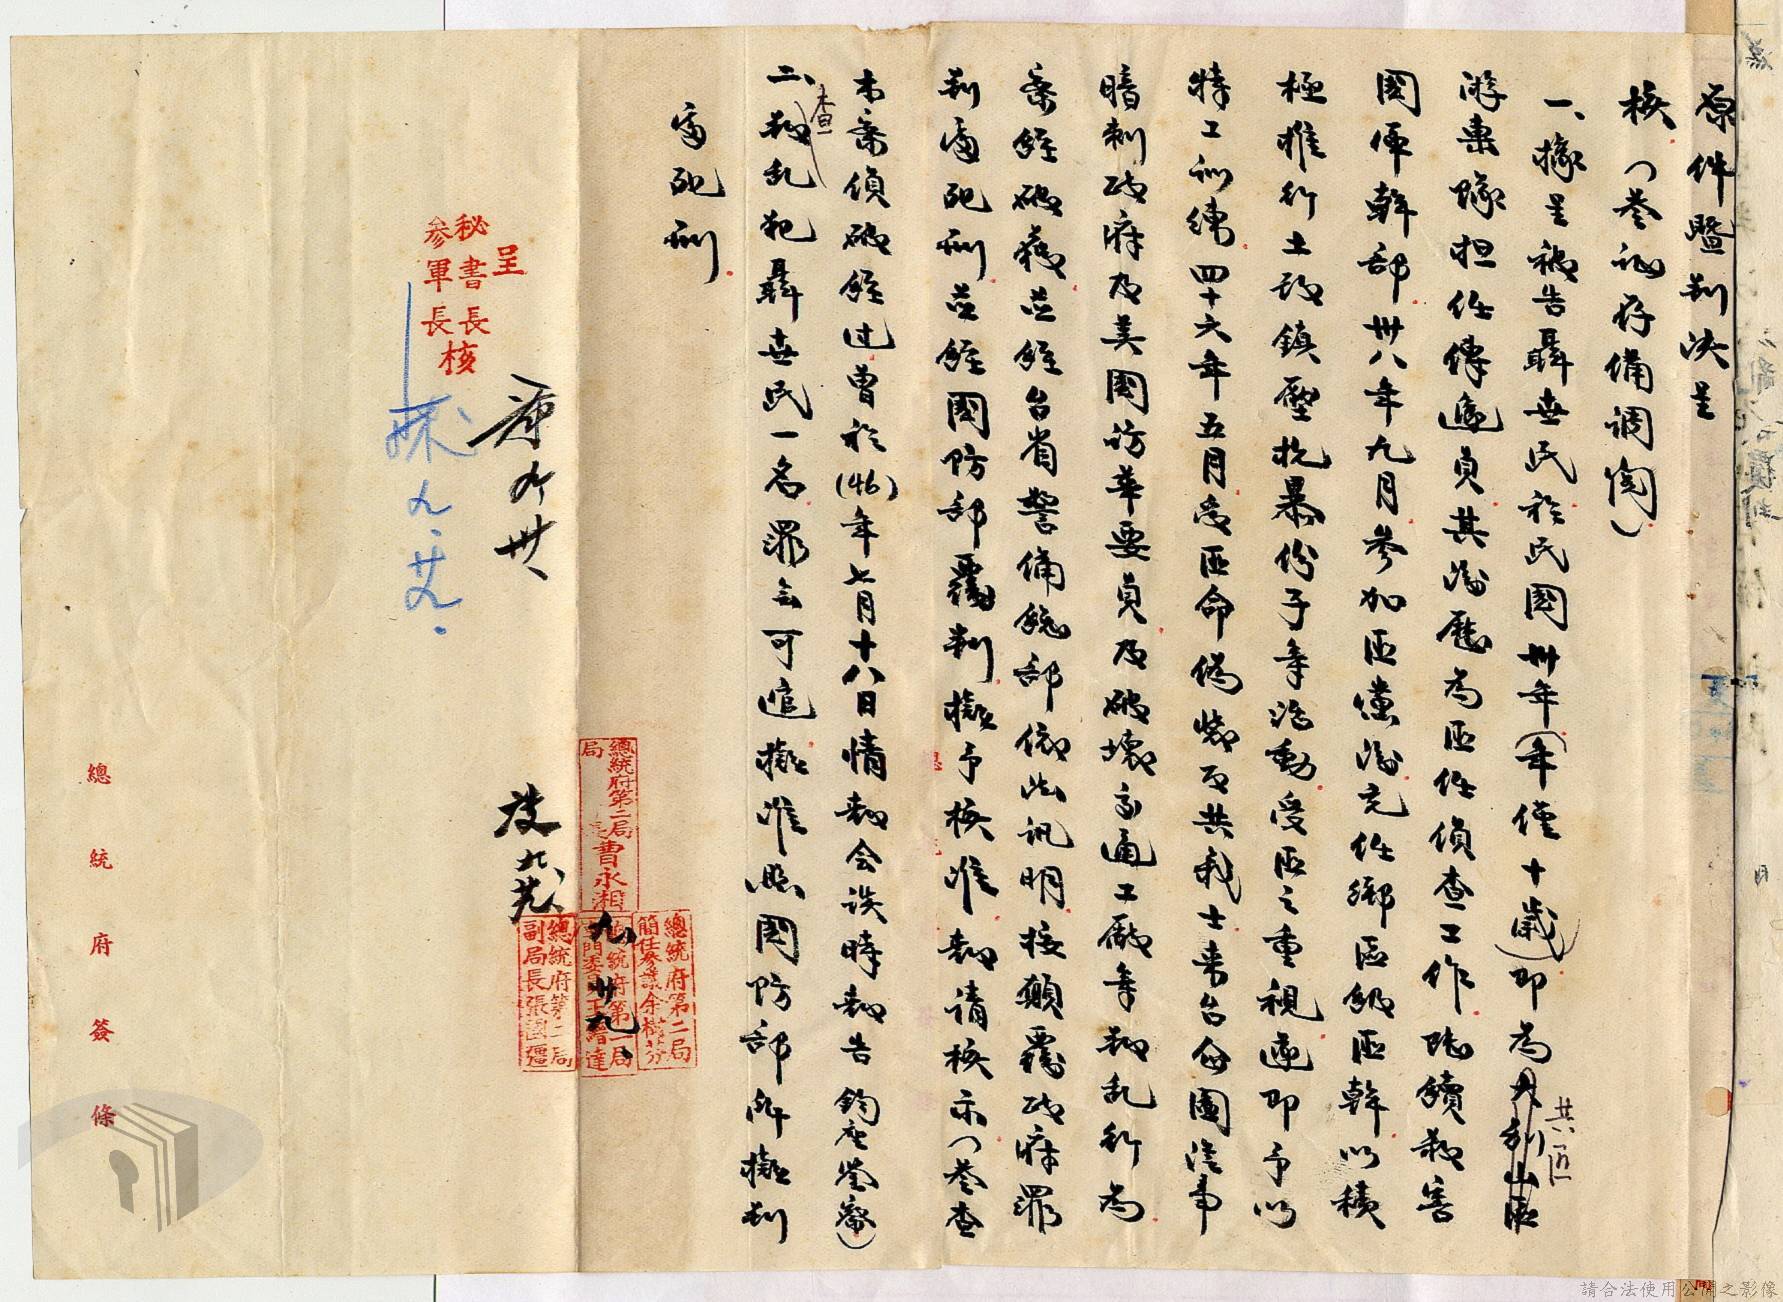 原件暨判決呈
核（卷証存備調閱）
一、據呈被告聶世民於民國卅年（年僅十歲）即為共匪
游擊隊担任傳遞員其後歷為匪任偵查工作陸續殺害
國軍幹部卅八年九月參加匪黨後充任鄉區級匪幹以積
極推行土改鎮壓抗暴份子等活動受匪之重視遂即予以
特工訓練四十六年五月受匪命偽裝反共義士來台企圖從事
暗刺政府及美國訪華要員及破壞交通工廠等叛乱行為
案經破獲並經台省警備總部依法訊明按顛覆政府罪
判處死刑並經國防部覆判擬予核准報請核示（卷查
本案偵破經过曾於(46)年七月十八日情報会談時報告鈞座營察）
二、查叛乱犯聶世民一名罪無可逭擬准照國防部所擬判
處死刑
呈
秘書長
參軍長
核
九、卅、
九、廿九、
總統府第二局
局長曹永湘
九、廿九、
總統府第二局
簡任參議余樹芬
總統府第二局
副局長張國疆
總統府簽條
請合法使用公開之影像